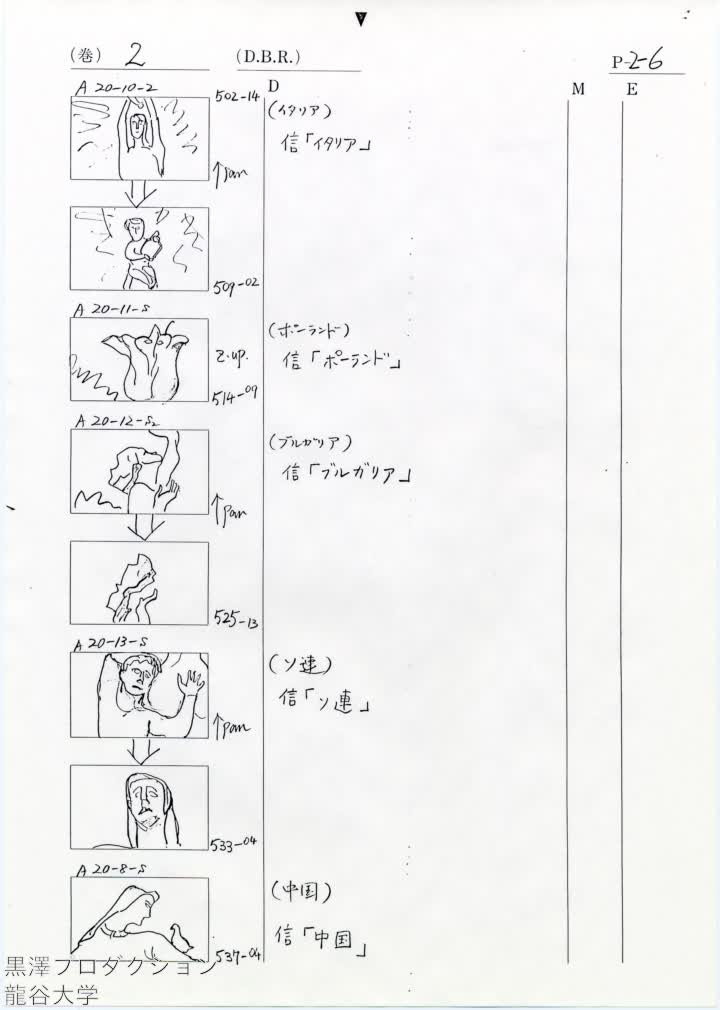 (巻) 2 (D.B.R.) P-2-6
D M E
A 20-10-2 502-14
(イタリア)
信「イタリア」
↑pan
509-02
A 20-11-S
(ポーランド)
Z.up.
信「ポーランド」
514-09
A 20-12-S2
(ブルガリア)
信「ブルガリア」
↑pan
525-13
A 20-13-S
(ソ連)
信「ソ連」
↑pan
533-04
A 20-8-S
(中国)
信「中国」
537-04
黒澤プロダクション
龍谷大学